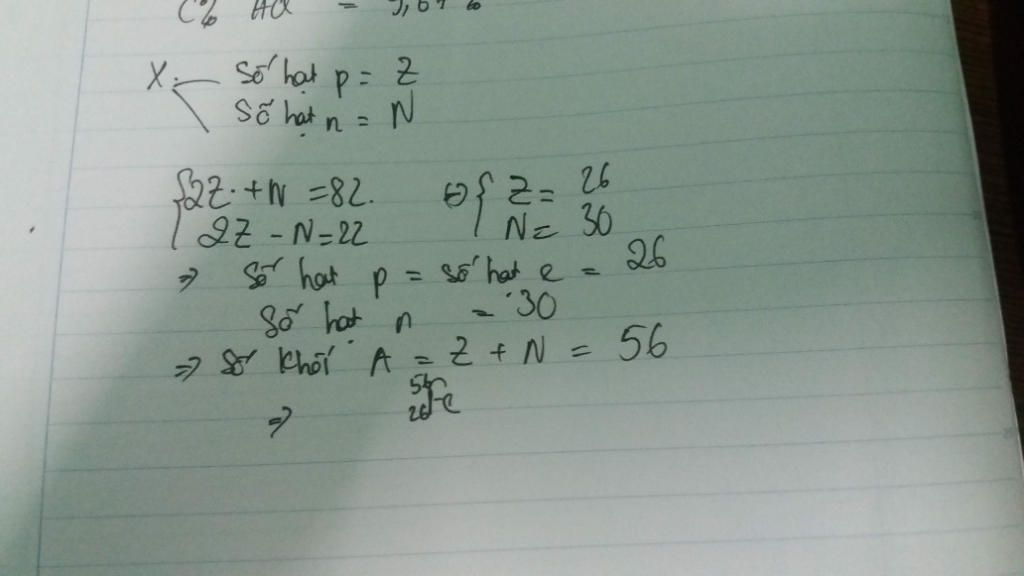 C% AQ =
X. Số hạt p = Z
Số hạt n = N
{2Z. + N = 82. ⇔ { Z = 26
2Z - N = 22 N = 30
⇒ Số hạt p = số hạt e = 26
Số hạt n = 30
⇒ Số khối A = Z + N = 56
⇒ ⁵⁶₂₆Fe